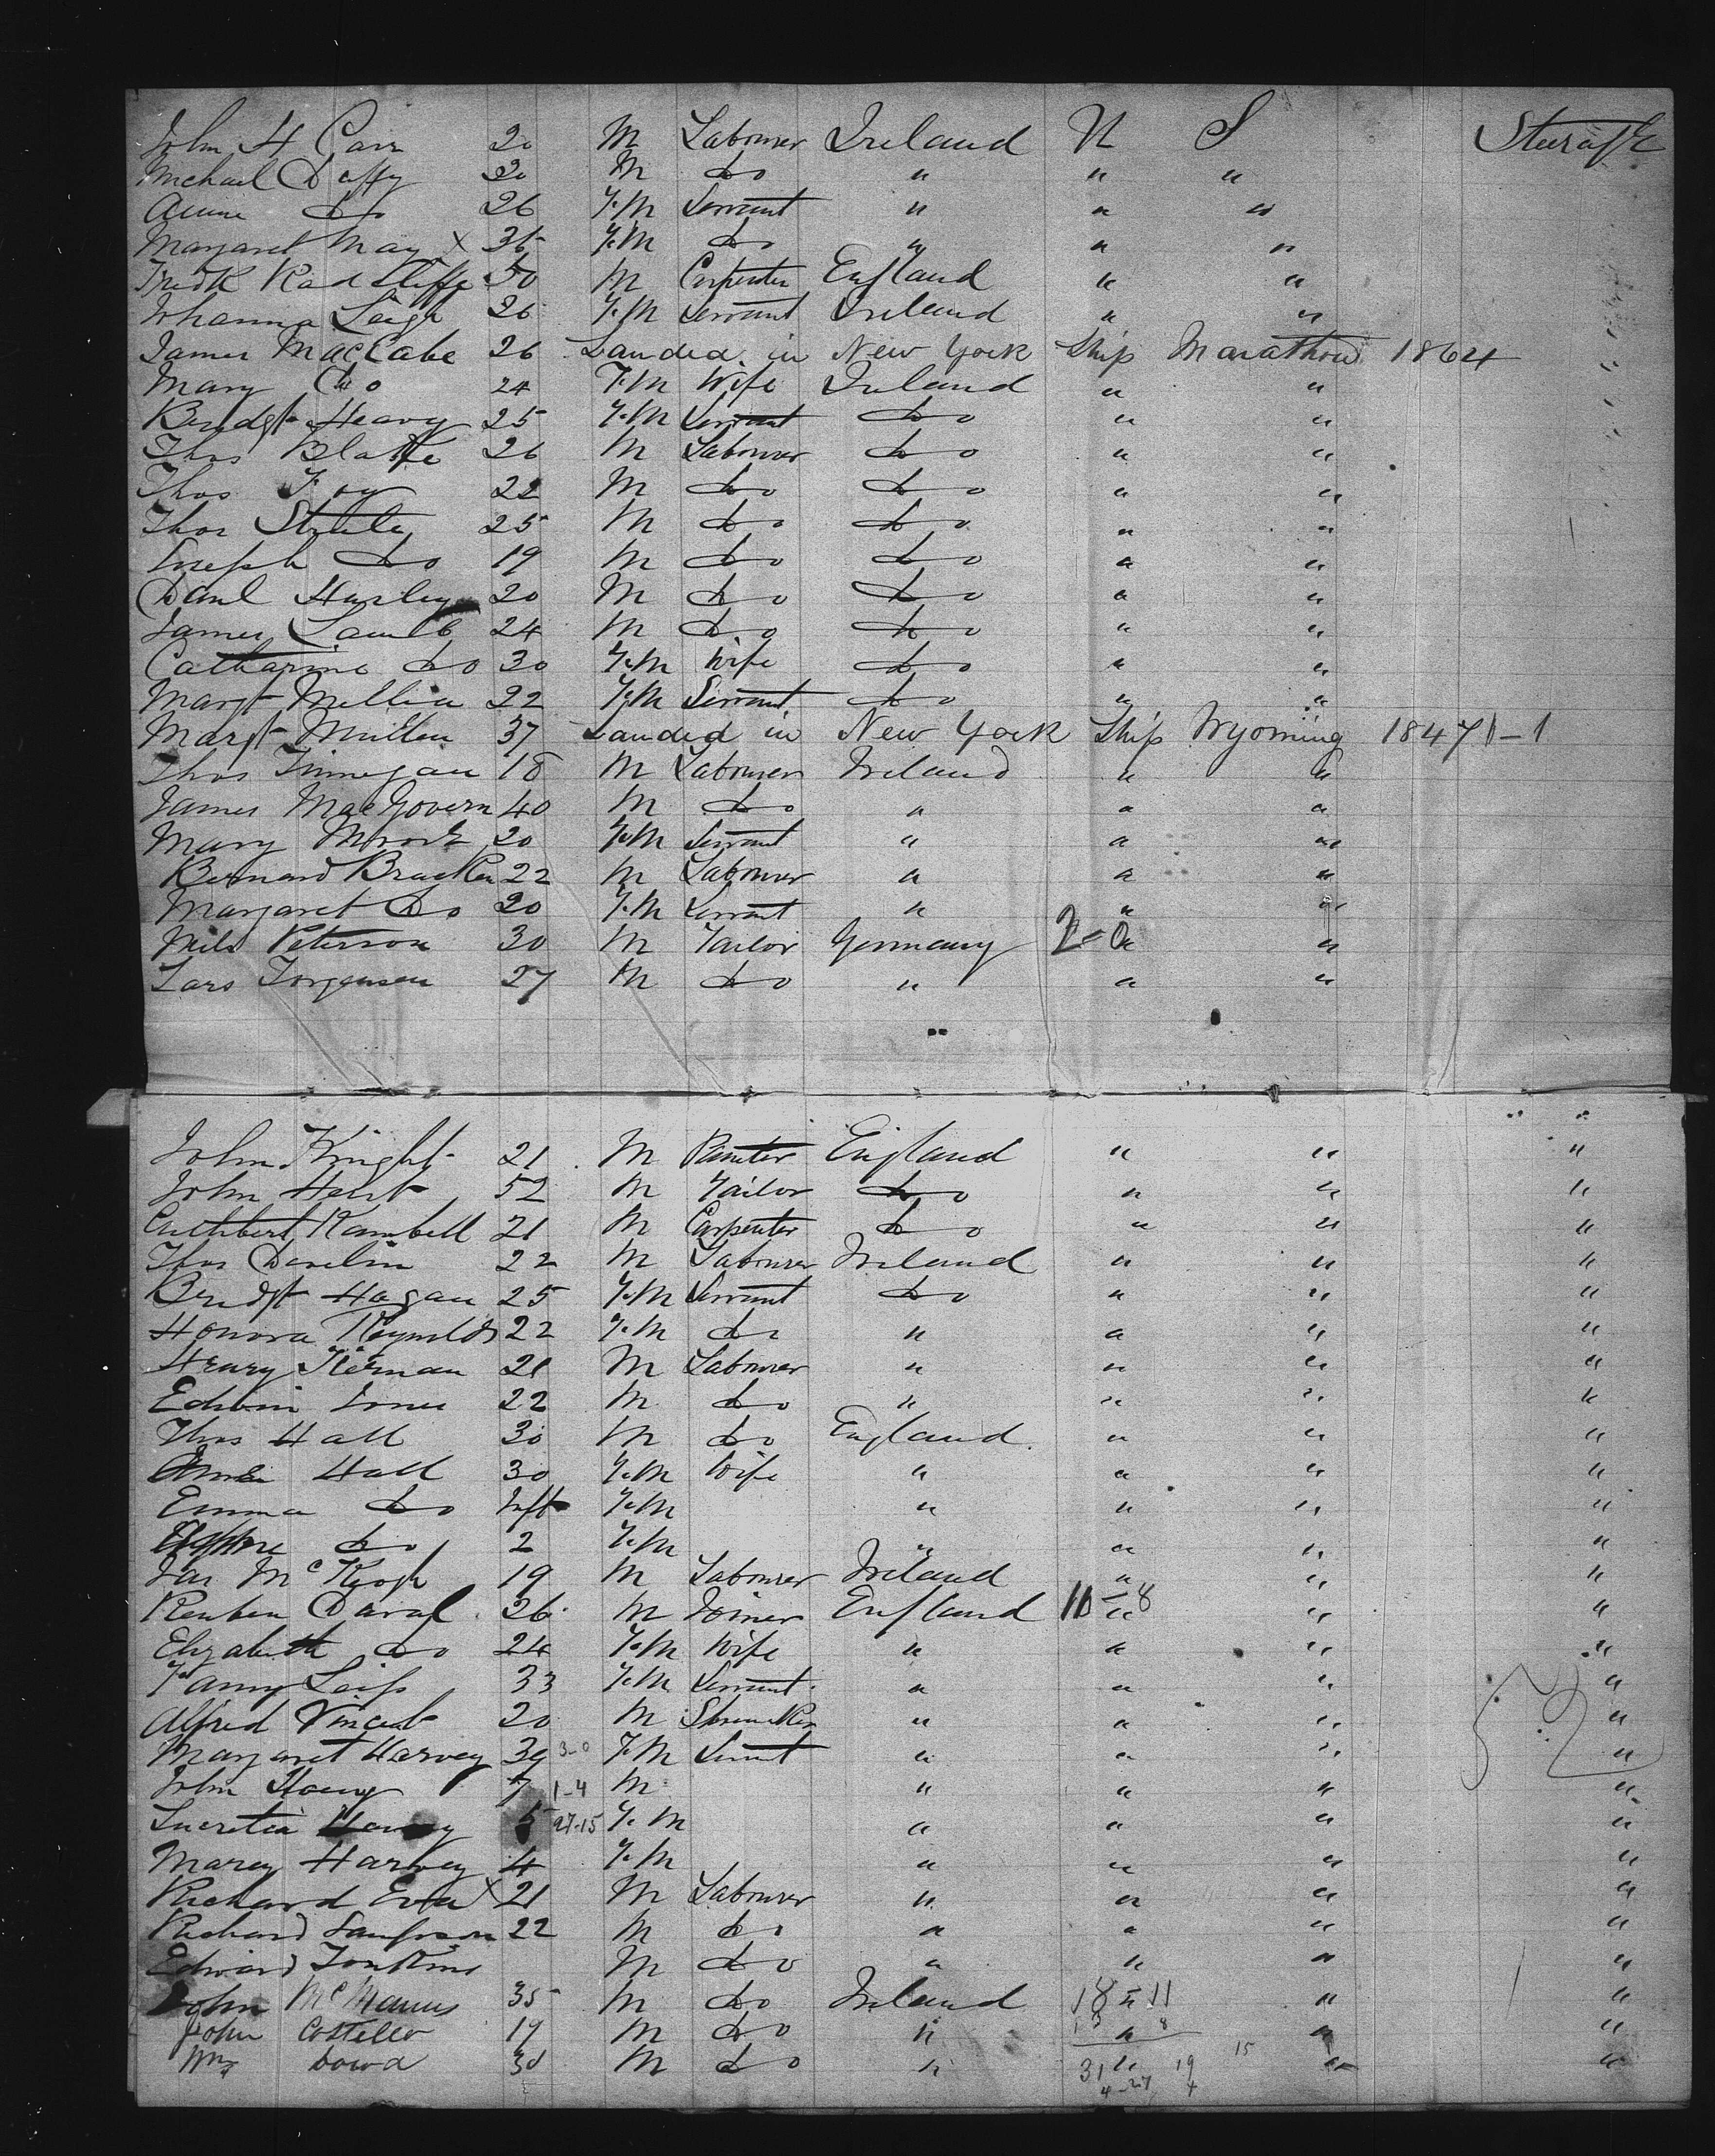 John H Carr 20 M Labourer Ireland U S Steerage
Michael Duffy 30 M do " " "
Anne do 26 F.M Servant " " "
Margaret May x 35 F.M do " " "
Fredk Radcliffe 50 M Carpenter England " "
Johanna Leigh 26 F.M Servant Ireland " "
James MacCabe 26 Landed in New York Ship Marathon 1864 "
Mary do 24 F.M Wife Ireland " "
Bridgt Heavy 25 F.M Servant do " "
Thos Blake 26 M Labourer do " "
Thos Foy 22 M do do " "
Thos 25 M do do " "
Joseph do 19 M do do " "
Danl Hurley 20 M do do " "
James Lamb 24 M do do " "
Catharine do 30 F.M Wife do " "
Margt 22 F.M Servant do " "
Margt Mullen 37 Landed in New York Ship Wyoming 1871-1
Thos Finnegan 18 M Labourer Ireland " "
James MacGovern 40 M do " " "
Mary 20 F.M Servant " " "
Bernard Bracken 22 M Labourer " " "
Margaret do 20 F.M Servant " " "
Nils Peterson 30 M Tailor Germany 2-0 " "
Lars Jorgensen 27 M do " " "
John Knight 21 M Painter England " " "
John 52 M Tailor do " " "
Cuthbert Kambell 21 M Carpenter do " " "
Thos Devlin 22 M Labourer Ireland " " "
Bridgt Hagan 25 F.M Servant do " " "
Honora Reynolds 22 F.M do " " " "
Henry Kiernan 21 M Labourer " " " "
Edwin Jones 22 M do " " " "
Thos Hall 30 M do England " " "
Hall 30 F.M Wife " " " "
Emma do Inft F.M " " " "
do 2 F.M " " " "
Jas McKeogh 19 M Labourer Ireland " " "
Reuben 26 M Joiner England 10-8 " " "
Elizabeth do 24 F.M Wife " " " "
Fanny 33 F.M Servant " " " "
Alfred Vincent 20 M Shoemaker " " " "
Margaret Harvey 39 3-0 F.M Servant " " " "
John Harvey 7 1-4 M " " " "
Lucretia Harvey 5 27-15 F.M " " " "
Marey Harvey 4 F.M " " " "
Richard x 21 M Labourer " " " "
Richard Sampson 22 M do " " " "
Edward Jenkins M do " " " "
John McManus 35 M do Ireland 18-11 " " "
John Costello 19 M do " " " "
Wm Dowd 30 M do " 31 " 19 15 " "
4-27 4